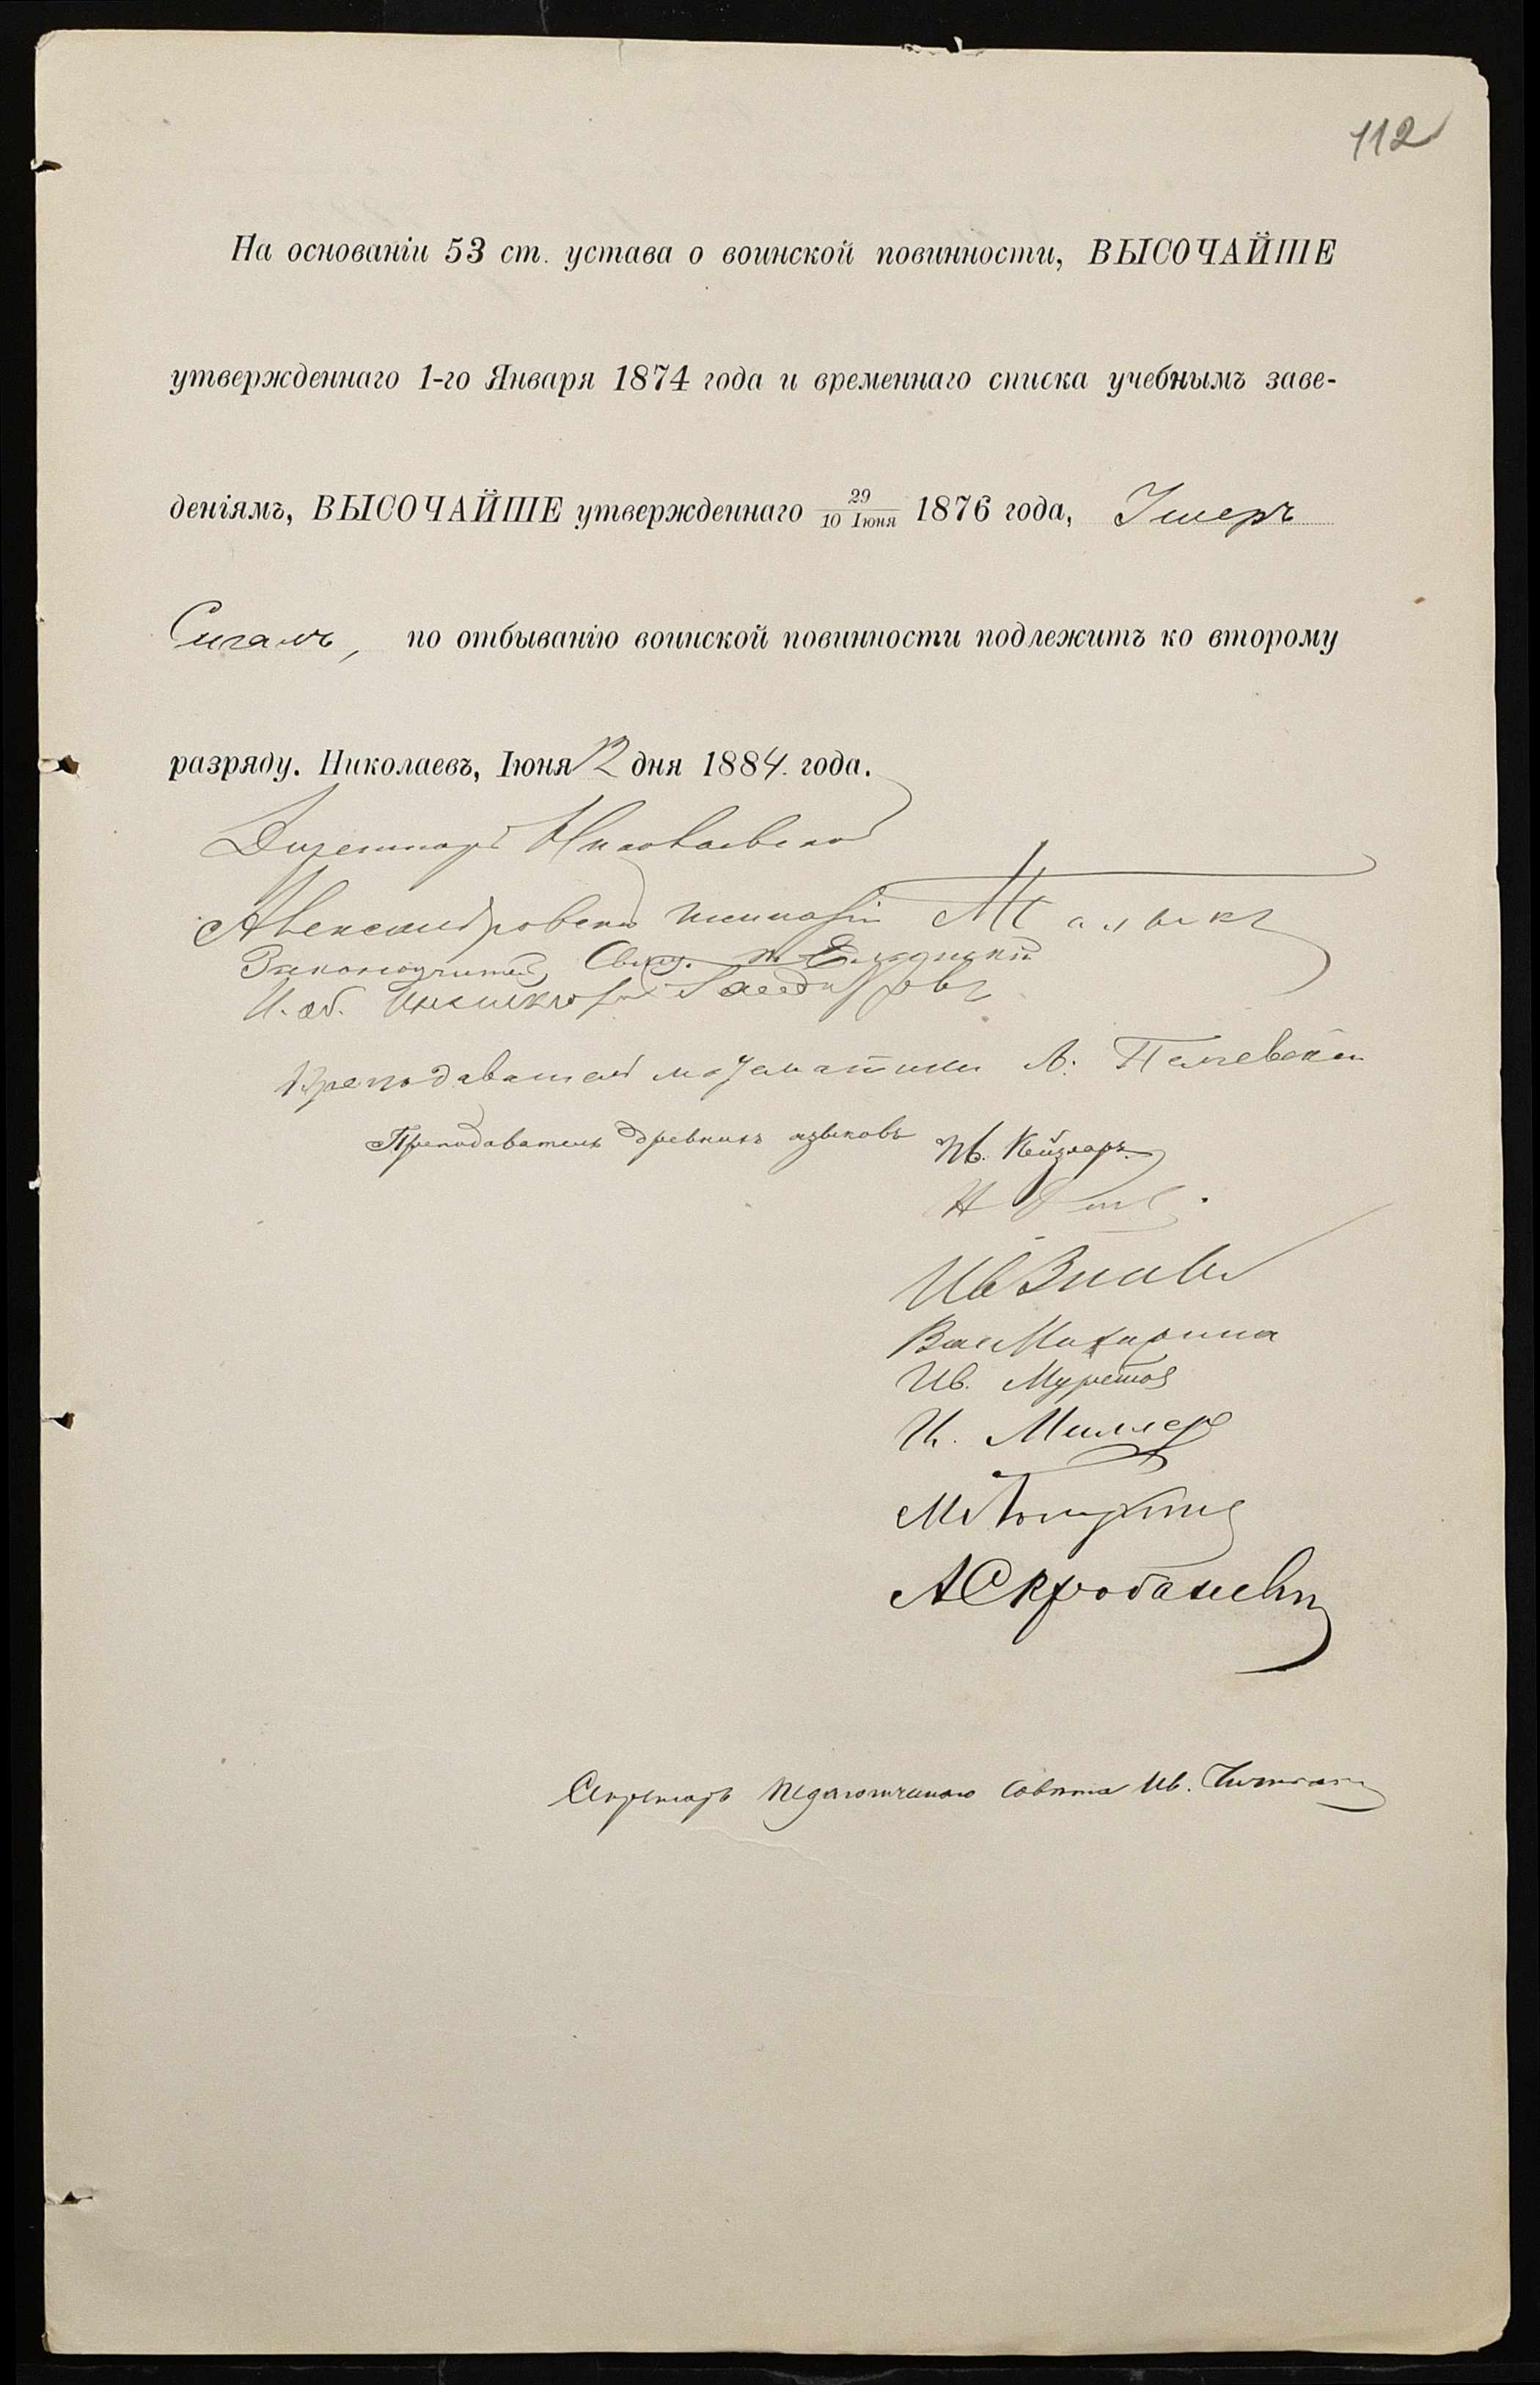 112
На основаніи 53 ст. устава о воинской повинности, ВЫСОЧАЙШЕ
утвержденнаго 1-го Января 1874 года и временнаго списка учебнымъ заве-
деніямъ, ВЫСОЧАЙШЕ утвержденнаго 29/10 Іюня 1876 года, Ушеръ
Сигалъ, по отбыванію воинской повинности подлежитъ ко второму
разряду. Николаевъ, Іюня 12 дня 1884 года.
Директоръ Николаевской
Александровской гимназіи
Законоучитель, Свящ.
И. об. Инспектора
Преподаватель математики А.
Преподаватель древнихъ языковъ Ив. Кейзларъ
Ив.
Ив. Муретов
И. Миллер
М
А Скробаневич
Секретарь педагогическаго совѣта Ив.